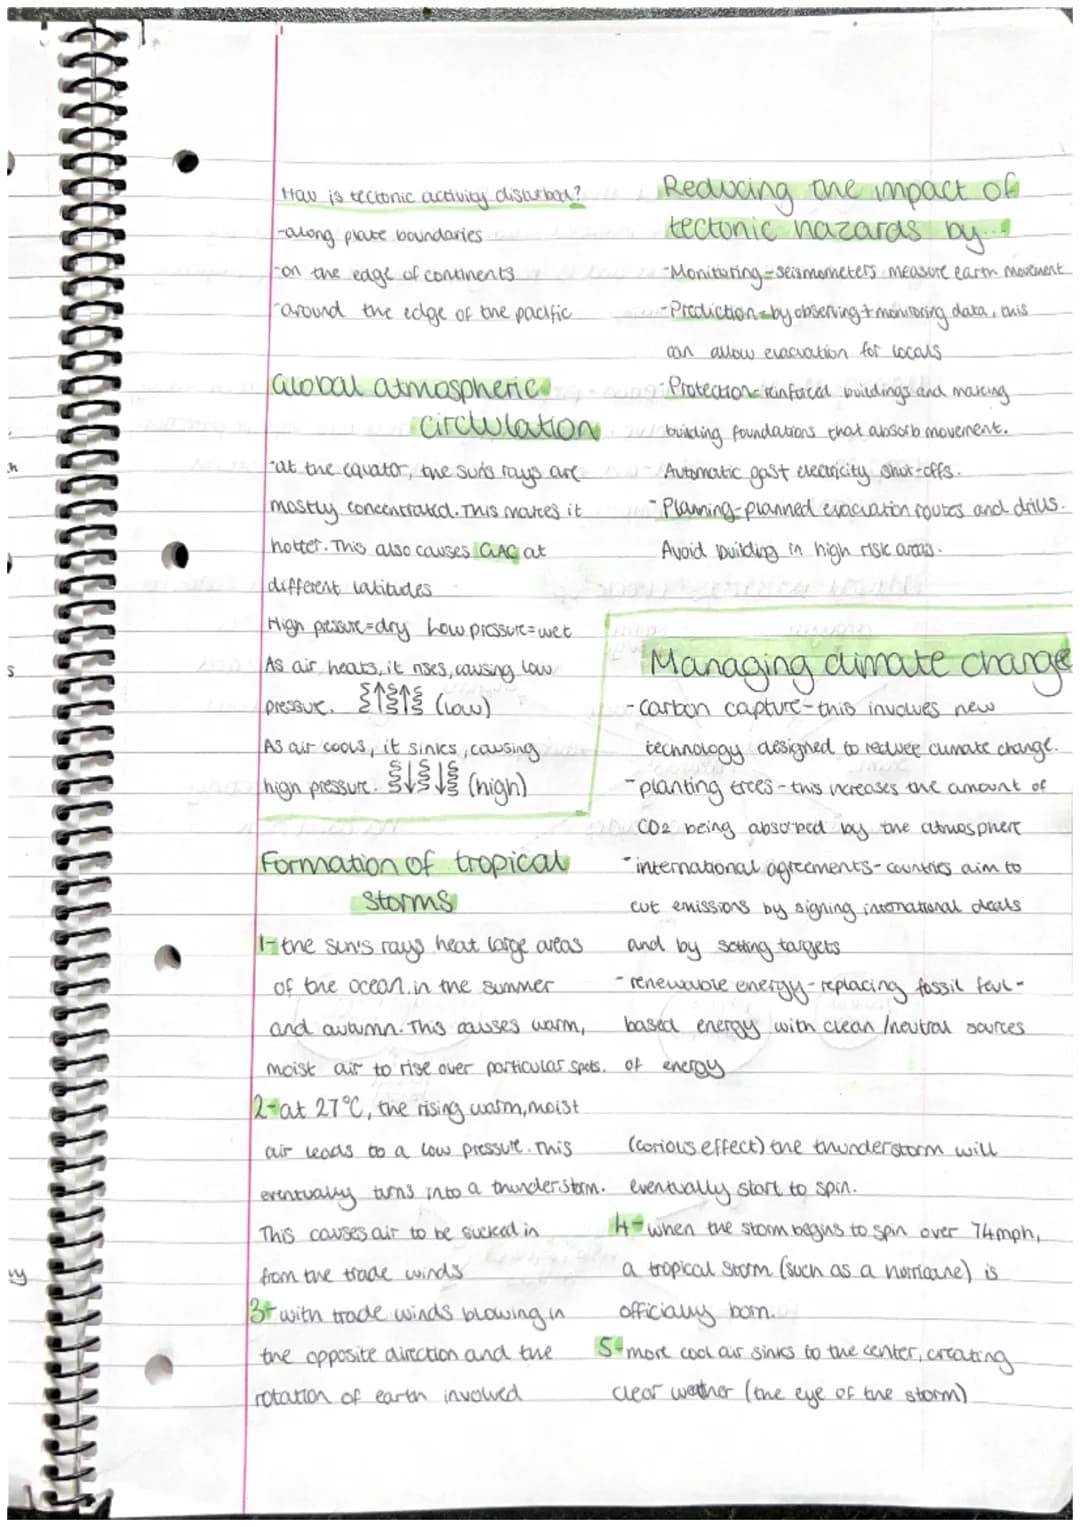 How is tectonic activity disturbed?
-along plate boundaries
-on the edge of continents
-around the edge of the pacific
Global atmospheric
circlulation
-at the equator, the sun's rays are
mostly concentrated. This makes it
hotter. This also causes GAC at
different latitudes
High pressure=dry Low pressure=wet
As air heats, it rises, causing low
pressure. (low)
As air cools, it sinks, causing
high pressure. (high)
Formation of tropical
storms
1- the sun's rays heat large areas
of the ocean in the summer
and autumn. This causes warm,
moist air to rise over particular spots.
2- at 27°C, the rising warm, moist
air leads to a low pressure. This
eventually turns into a thunderstorm.
This causes air to be sucked in
from the trade winds
3- with trade winds blowing in
the opposite direction and the
rotation of earth involved
Reducing the impact of
tectonic hazards by...
-Monitoring=seismometers measure earth movement
-Prediction=by observing + monitoring data, this
can allow evacuation for locals
-Protection=reinforced buildings and making
building foundations that absorb movement.
Automatic gas+ electricity shut-offs.
-Planning-planned evacuation routes and drills.
Avoid building in high risk areas.
Managing climate change
-carbon capture-this involves new
technology designed to reduce climate change.
-planting trees-this increases the amount of
CO2 being absorbed by the atmosphere
-international agreements-countries aim to
cut emissions by signing international deals
and by setting targets
-renewable energy-replacing fossil feul-
based energy with clean/neutral sources
of energy
(corious effect) the thunderstorm will
eventually start to spin.
4- when the storm begins to spin over 74mph,
a tropical storm (such as a hurricane) is
officially born.
5- more cool air sinks to the center, creating
clear weather (the eye of the storm)